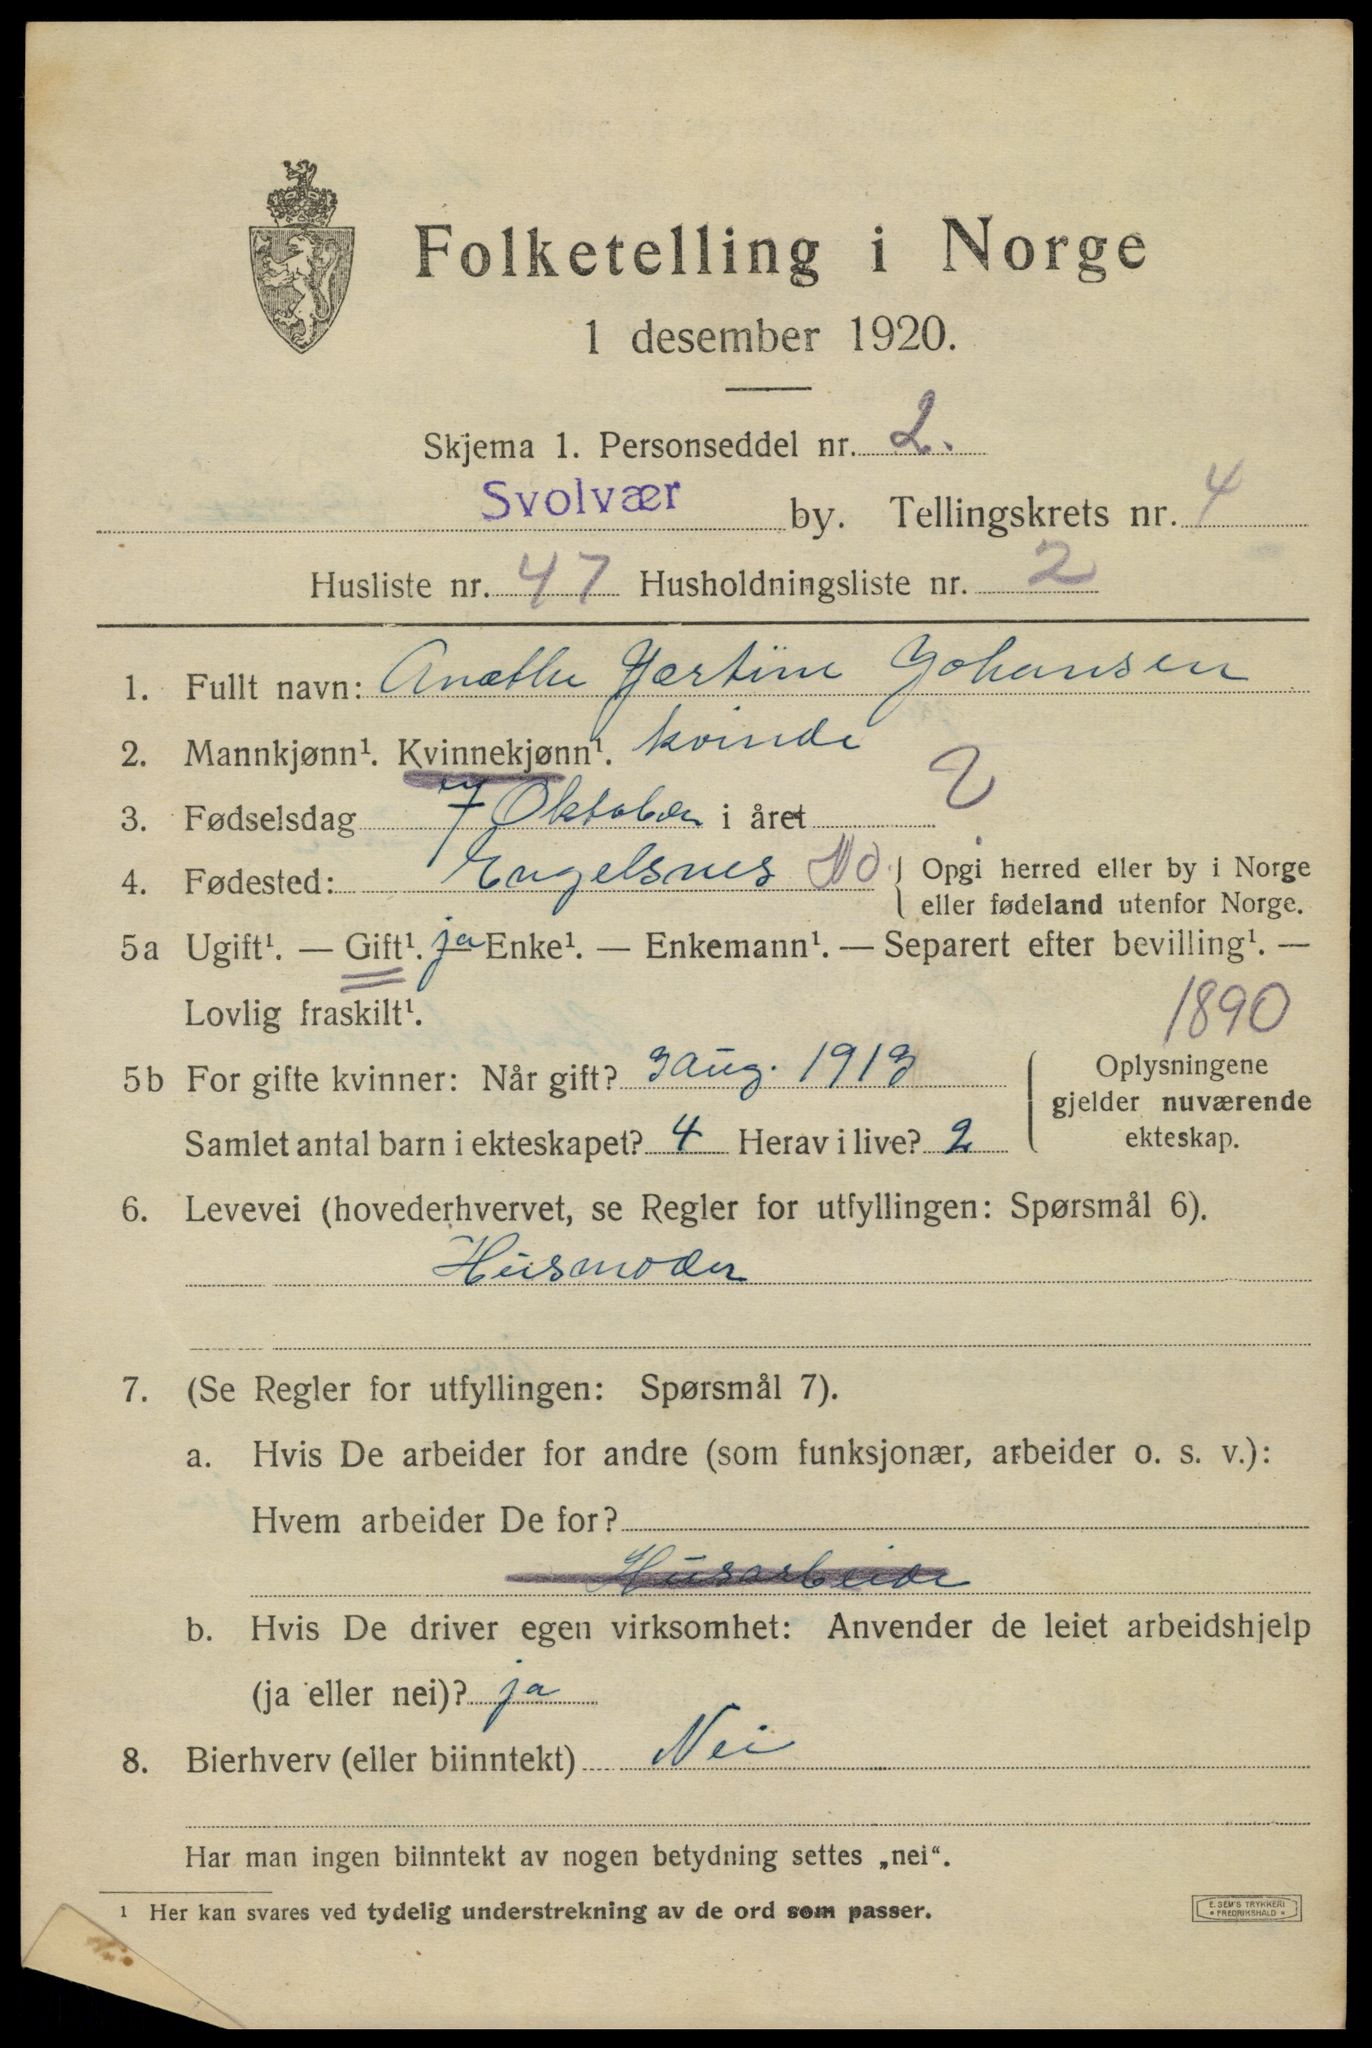 Folketelling i Norge
1 desember 1920.
Skjema 1. Personseddel nr. 2.
Svolvær by. Tellingskrets nr. 4
Husliste nr. 47 Husholdningsliste nr. 2
1. Fullt navn: Anæthe Hertine Johansen
2. Mannkjønn¹. Kvinnekjønn¹. kvinde
3. Fødselsdag 7 Oktober i året 2
4. Fødested: Engelsnes No. Opgi herred eller by i Norge
eller fødeland utenfor Norge.
5a Ugift¹. — Gift¹. ja Enke¹. — Enkemann¹. — Separert efter bevilling¹. —
Lovlig fraskilt¹. 1890
5b For gifte kvinner: Når gift? 3 Aug. 1913 Oplysningene
gjelder nuværende
ekteskap.
Samlet antal barn i ekteskapet? 4 Herav i live? 2
6. Levevei (hovederhvervet, se Regler for utfyllingen: Spørsmål 6).
Husmoder
7. (Se Regler for utfyllingen: Spørsmål 7).
a. Hvis De arbeider for andre (som funksjonær, arbeider o. s. v.):
Hvem arbeider De for?
Husarbeide
b. Hvis De driver egen virksomhet: Anvender de leiet arbeidshjelp
(ja eller nei)? ja
8. Bierhverv (eller biinntekt) Nei
Har man ingen biinntekt av nogen betydning settes „nei“.
¹ Her kan svares ved tydelig understrekning av de ord som passer.
E. SEM'S TRYKKERI
* FREDRIKSHALD *